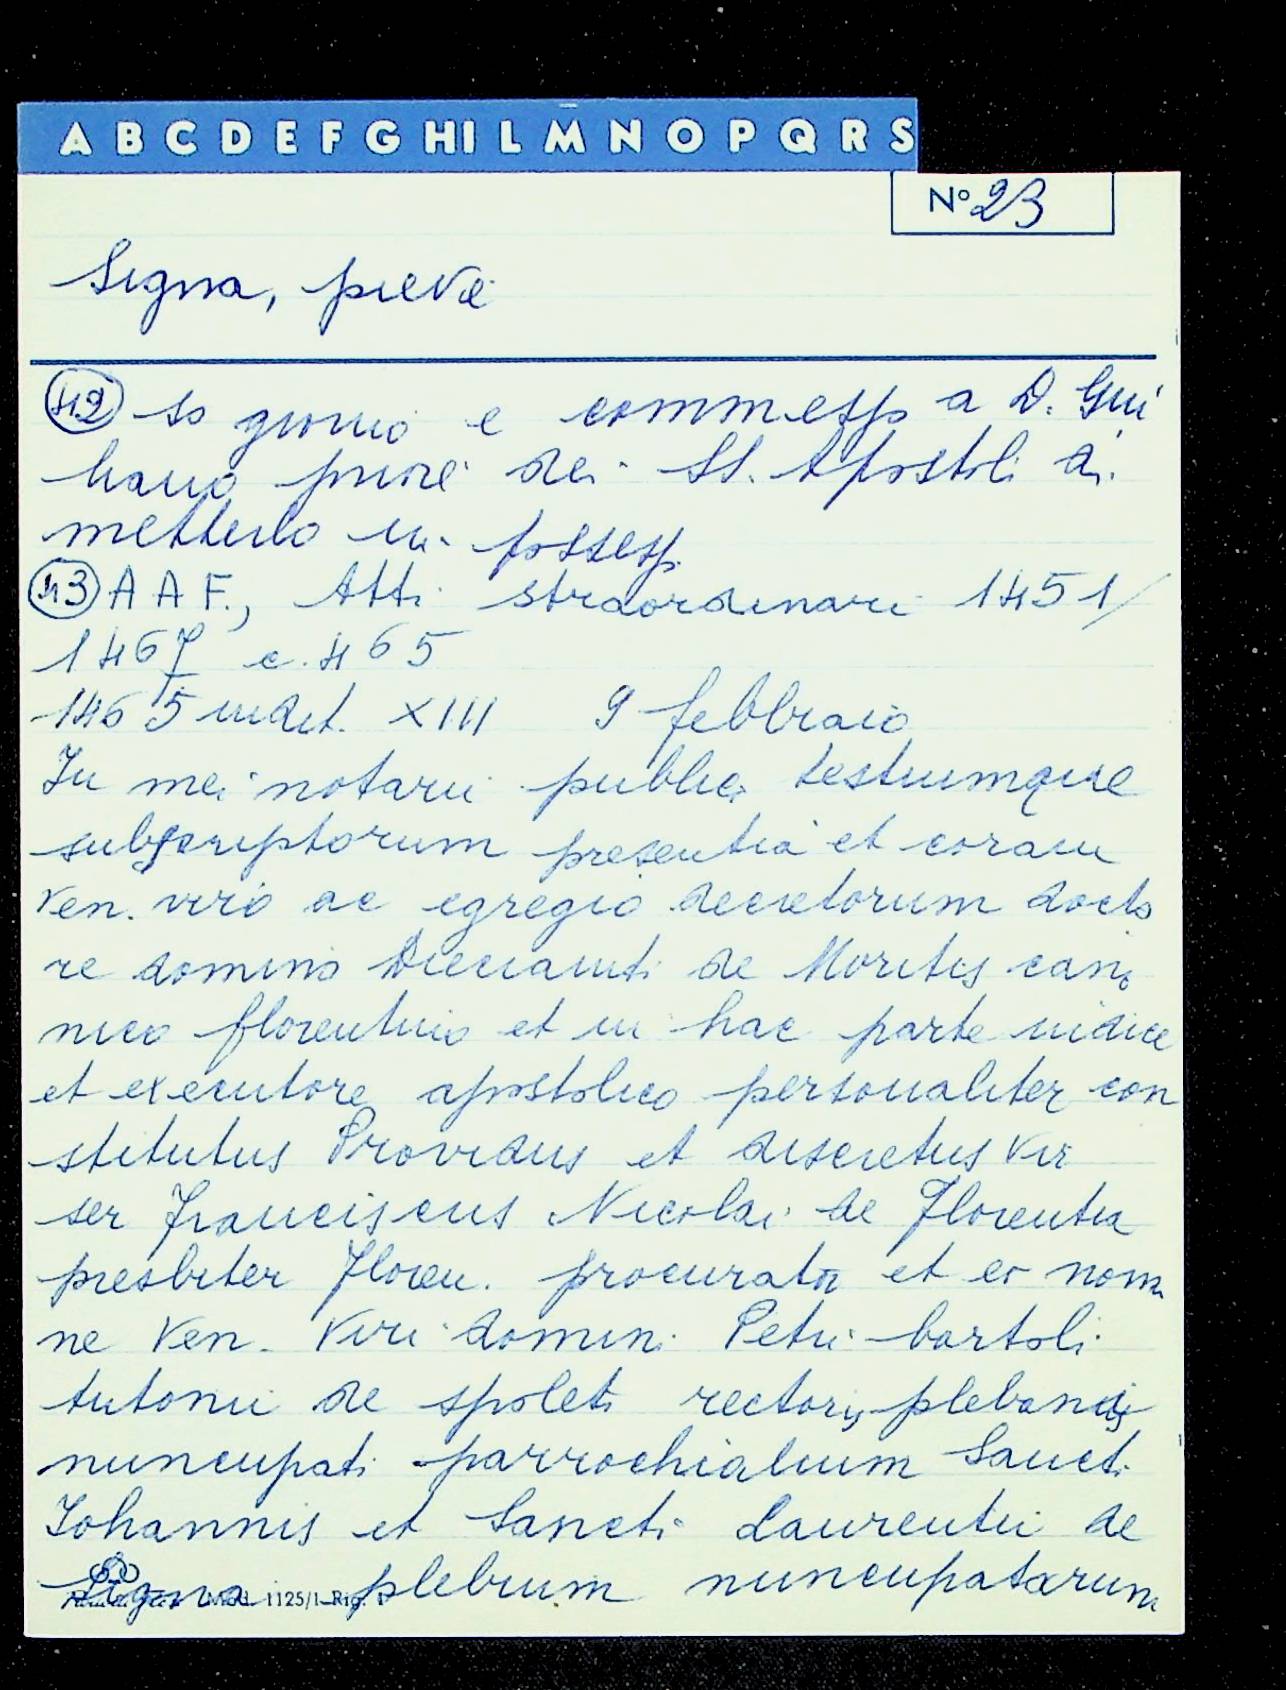 A B C D E F G H I L M N O P Q R S
N° 23
Signa, pieve
42 so giorno e commesso a D. Giu
liano priore dei SS. Apostoli di
metterlo in possesso
43 A A F., Atti straordinari 1451/
1467 c. 465
1465 indit. XIII 9 febbraio
In mei notarii publici testiumque
subscriptorum presentia et coram
Ven. viro ac egregio decretorum docto
re domino de cano
nico florentino et in hac parte iudice
et executore apostolico personaliter con
stitutus Providus et discretus Vir
ser Franciscus Nicolai de Florentia
presbiter Floren. procurator et eo nomi
ne Ven. Viri domini Petri bartoli
de spoleti rectoris plebani
nuncupati parrochialium Sancti
Johannis et Sancti Laurentii de
Signa plebium nuncupatarum
Mod. 1125/1 Rig. 1